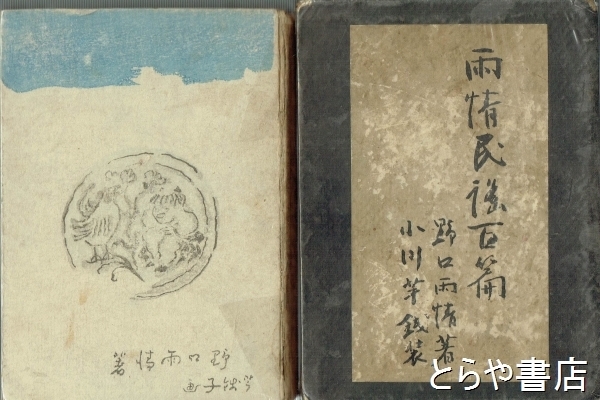 野口雨情著
芋銭子画
雨情民謡百篇
野口雨情著
小川芋銭装
とらや書店